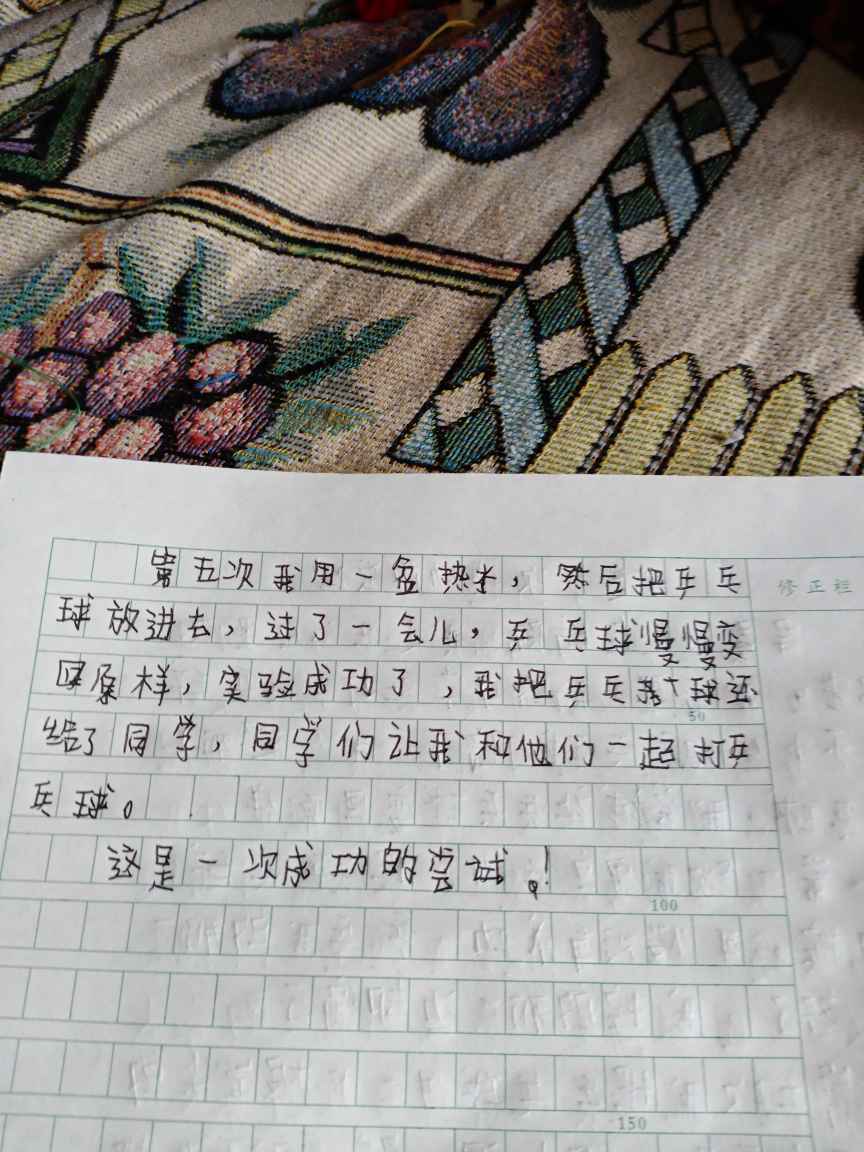 第五次我用一盆热水，然后把乒乓
修正栏
球放进去，过了一会儿，乒乓球慢慢变
回原样，实验成功了，我把乒乓球还
50
给了同学，同学们让我和他们一起打乒
乓球。
这是一次成功的尝试。！
100
150